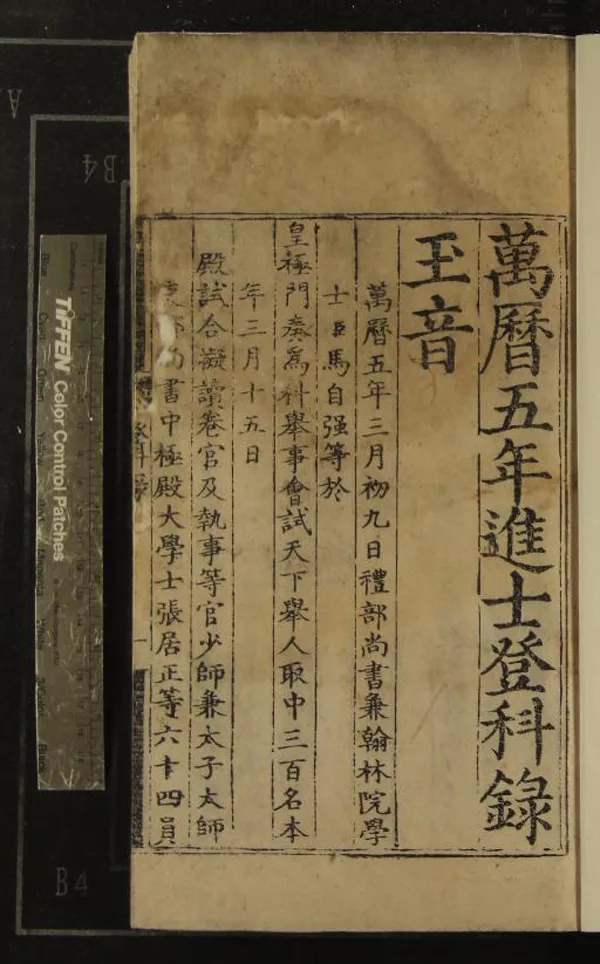 萬曆五年進士登科錄
玉音
萬曆五年三月初九日禮部尚書兼翰林院學
士臣馬自强等於
皇極門奏爲科舉事會試天下舉人取中三百名本
年三月十五日
殿試合擬讀卷官及執事等官少師兼太子太師
吏部尚書中極殿大學士張居正等六十四員
一
TIFFEN Color Control Patches
B4
B4
A